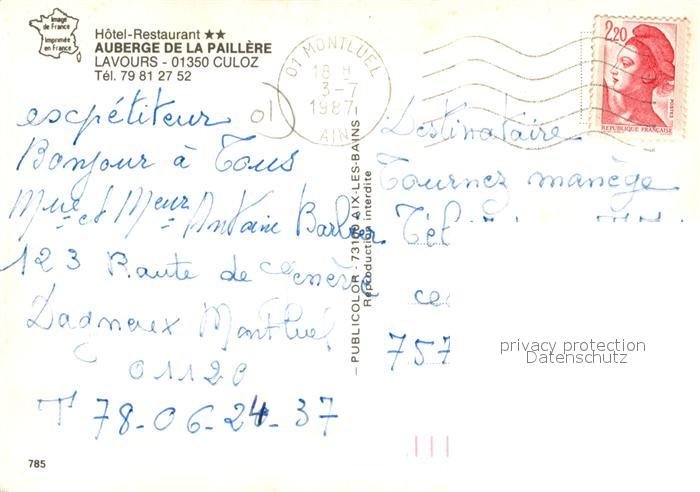 Image
de France
Imprimée
en France
Hôtel-Restaurant ★★
AUBERGE DE LA PAILLÈRE
LAVOURS - 01350 CULOZ
Tél. 79 81 27 52
01 MONTLUEL
18 H
3-7
1987
AIN
2,20
POSTES
REPUBLIQUE FRANÇAISE
escpétiteur
01
Bonjour à Tous
Mme et Meur Antoine Barbier
123 Route de Genève
Dagneux Montluel
01120
T 78-06-24-37
785
PUBLICOLOR - 73100 AIX-LES-BAINS
Reproduction interdite
Destinataire
Tournez manège
Tél
ce
757
privacy protection
Datenschutz